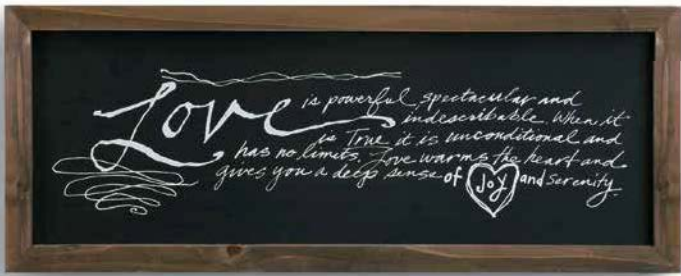 Love is powerful, spectacular and
indescribable. When it
is True it is unconditional and
has no limits. Love warms the heart and
gives you a deep sense of Joy and serenity.